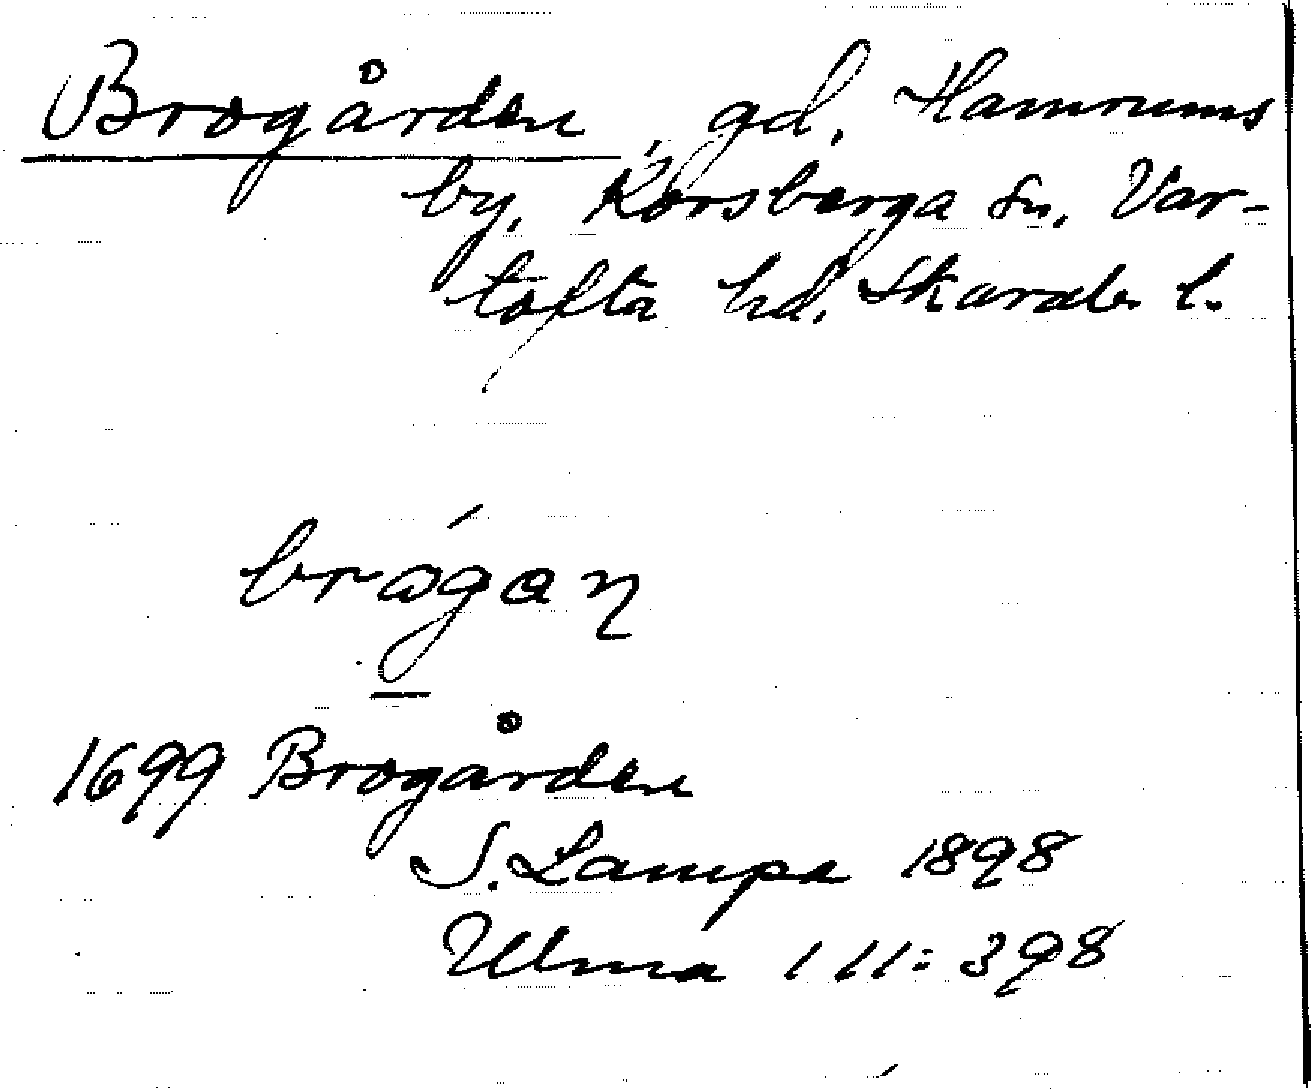 Brogården, gd, Hamrums
by, Korsberga sn, Var-
tofta hd, Skarab. l.
brógan
1699 Brogården
S. Lampa 1898
Ulma 111:398